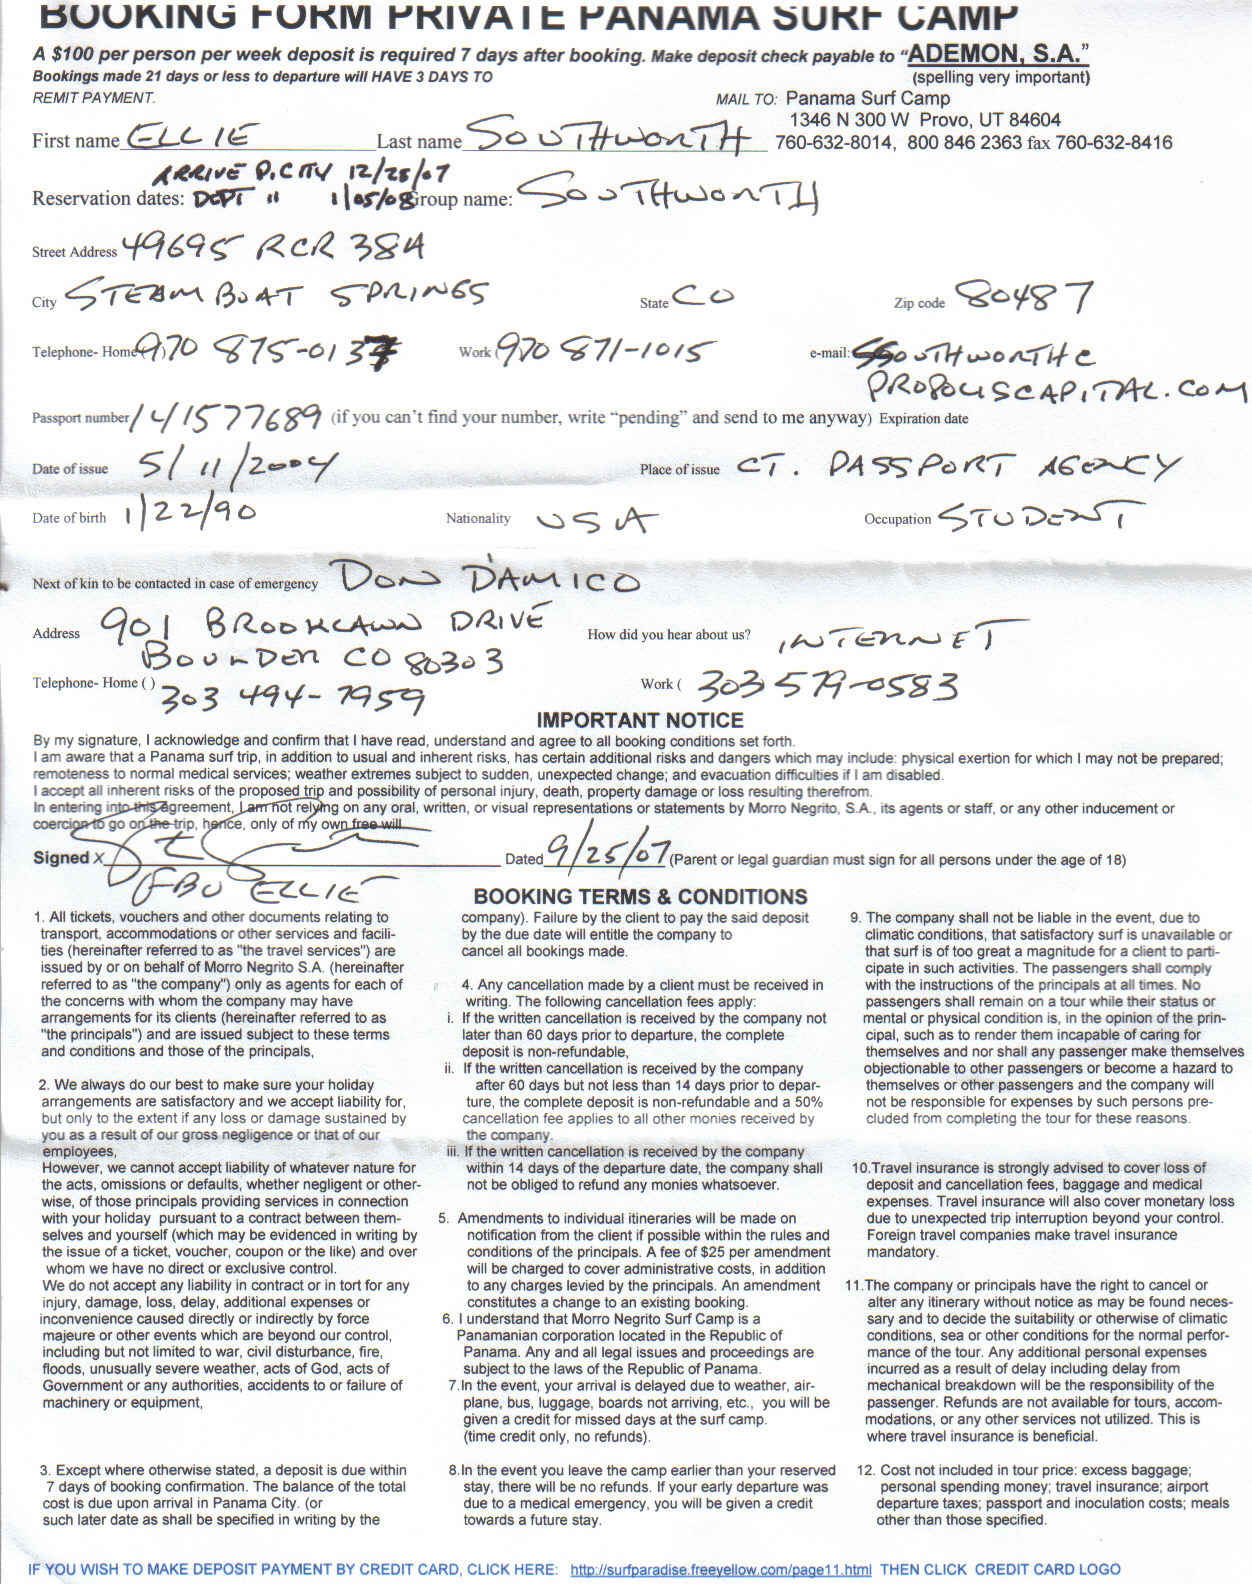 BOOKING FORM PRIVATE PANAMA SURF CAMP
A $100 per person per week deposit is required 7 days after booking. Make deposit check payable to “ADEMON, S.A.”
Bookings made 21 days or less to departure will HAVE 3 DAYS TO (spelling very important)
REMIT PAYMENT. MAIL TO: Panama Surf Camp
1346 N 300 W Provo, UT 84604
First name ELLIE Last name SOUTHWORTH 760-632-8014, 800 846 2363 fax 760-632-8416
ARRIVE P.CITY 12/28/07
Reservation dates: DEPT " 1/05/08 Group name: SOUTHWORTH
Street Address 49695 RCR 38A
City STEAMBOAT SPRINGS State CO Zip code 80487
Telephone- Home ( ) 970 875-0137 Work ( ) 970 871-1015 e-mail: SSOUTHWORTH@
PROPOLISCAPITAL.COM
Passport number 141577689 (if you can't find your number, write “pending” and send to me anyway) Expiration date
Date of issue 5/11/2004 Place of issue CT. PASSPORT AGENCY
Date of birth 1/22/90 Nationality USA Occupation STUDENT
Next of kin to be contacted in case of emergency DON D'AMICO
Address 901 BROOKLAWN DRIVE How did you hear about us? INTERNET
BOULDER CO 80303
Telephone- Home ( ) 303 494-7959 Work ( 303 579-0583
IMPORTANT NOTICE
By my signature, I acknowledge and confirm that I have read, understand and agree to all booking conditions set forth.
I am aware that a Panama surf trip, in addition to usual and inherent risks, has certain additional risks and dangers which may include: physical exertion for which I may not be prepared;
remoteness to normal medical services; weather extremes subject to sudden, unexpected change; and evacuation difficulties if I am disabled.
I accept all inherent risks of the proposed trip and possibility of personal injury, death, property damage or loss resulting therefrom.
In entering into this agreement, I am not relying on any oral, written, or visual representations or statements by Morro Negrito, S.A., its agents or staff, or any other inducement or
coercion to go on the trip, hence, only of my own free will.
Signed X Dated 9/25/07 (Parent or legal guardian must sign for all persons under the age of 18)
FBO ELLIE
BOOKING TERMS & CONDITIONS
1. All tickets, vouchers and other documents relating to
transport, accommodations or other services and facili-
ties (hereinafter referred to as "the travel services") are
issued by or on behalf of Morro Negrito S.A. (hereinafter
referred to as "the company") only as agents for each of
the concerns with whom the company may have
arrangements for its clients (hereinafter referred to as
"the principals") and are issued subject to these terms
and conditions and those of the principals,
2. We always do our best to make sure your holiday
arrangements are satisfactory and we accept liability for,
but only to the extent if any loss or damage sustained by
you as a result of our gross negligence or that of our
employees,
However, we cannot accept liability of whatever nature for
the acts, omissions or defaults, whether negligent or other-
wise, of those principals providing services in connection
with your holiday pursuant to a contract between them-
selves and yourself (which may be evidenced in writing by
the issue of a ticket, voucher, coupon or the like) and over
whom we have no direct or exclusive control.
We do not accept any liability in contract or in tort for any
injury, damage, loss, delay, additional expenses or
inconvenience caused directly or indirectly by force
majeure or other events which are beyond our control,
including but not limited to war, civil disturbance, fire,
floods, unusually severe weather, acts of God, acts of
Government or any authorities, accidents to or failure of
machinery or equipment,
3. Except where otherwise stated, a deposit is due within
7 days of booking confirmation. The balance of the total
cost is due upon arrival in Panama City. (or
such later date as shall be specified in writing by the
company). Failure by the client to pay the said deposit
by the due date will entitle the company to
cancel all bookings made.
4. Any cancellation made by a client must be received in
writing. The following cancellation fees apply:
i. If the written cancellation is received by the company not
later than 60 days prior to departure, the complete
deposit is non-refundable,
ii. If the written cancellation is received by the company
after 60 days but not less than 14 days prior to depar-
ture, the complete deposit is non-refundable and a 50%
cancellation fee applies to all other monies received by
the company.
iii. If the written cancellation is received by the company
within 14 days of the departure date, the company shall
not be obliged to refund any monies whatsoever.
5. Amendments to individual itineraries will be made on
notification from the client if possible within the rules and
conditions of the principals. A fee of $25 per amendment
will be charged to cover administrative costs, in addition
to any charges levied by the principals. An amendment
constitutes a change to an existing booking.
6. I understand that Morro Negrito Surf Camp is a
Panamanian corporation located in the Republic of
Panama. Any and all legal issues and proceedings are
subject to the laws of the Republic of Panama.
7.In the event, your arrival is delayed due to weather, air-
plane, bus, luggage, boards not arriving, etc., you will be
given a credit for missed days at the surf camp.
(time credit only, no refunds).
8.In the event you leave the camp earlier than your reserved
stay, there will be no refunds. If your early departure was
due to a medical emergency, you will be given a credit
towards a future stay.
9. The company shall not be liable in the event, due to
climatic conditions, that satisfactory surf is unavailable or
that surf is of too great a magnitude for a client to parti-
cipate in such activities. The passengers shall comply
with the instructions of the principals at all times. No
passengers shall remain on a tour while their status or
mental or physical condition is, in the opinion of the prin-
cipal, such as to render them incapable of caring for
themselves and nor shall any passenger make themselves
objectionable to other passengers or become a hazard to
themselves or other passengers and the company will
not be responsible for expenses by such persons pre-
cluded from completing the tour for these reasons.
10.Travel insurance is strongly advised to cover loss of
deposit and cancellation fees, baggage and medical
expenses. Travel insurance will also cover monetary loss
due to unexpected trip interruption beyond your control.
Foreign travel companies make travel insurance
mandatory.
11.The company or principals have the right to cancel or
alter any itinerary without notice as may be found neces-
sary and to decide the suitability or otherwise of climatic
conditions, sea or other conditions for the normal perfor-
mance of the tour. Any additional personal expenses
incurred as a result of delay including delay from
mechanical breakdown will be the responsibility of the
passenger. Refunds are not available for tours, accom-
modations, or any other services not utilized. This is
where travel insurance is beneficial.
12. Cost not included in tour price: excess baggage;
personal spending money; travel insurance; airport
departure taxes; passport and inoculation costs; meals
other than those specified.
IF YOU WISH TO MAKE DEPOSIT PAYMENT BY CREDIT CARD, CLICK HERE: http://surfparadise.freeyellow.com/page11.html THEN CLICK CREDIT CARD LOGO